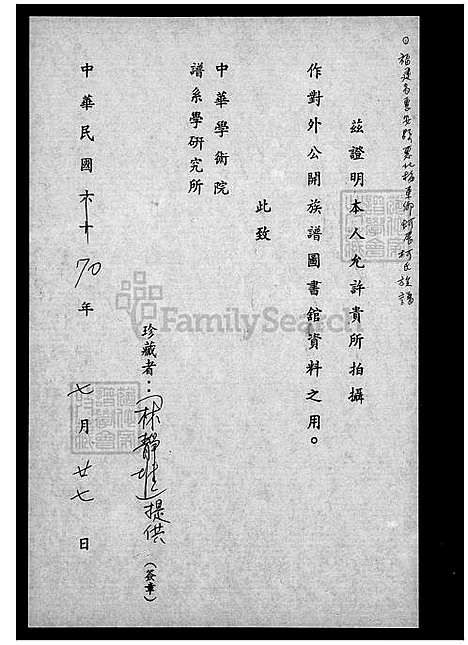 福建省惠安縣惠北 車鄉 柯氏族譜
茲證明本人允許貴所拍攝
作對外公開族譜圖書館資料之用。
此致
中華學術院
譜系學研究所
珍藏者：林靜 提供（簽章）
中華民國六十 70 年 七 月 廿七 日
FamilySearch